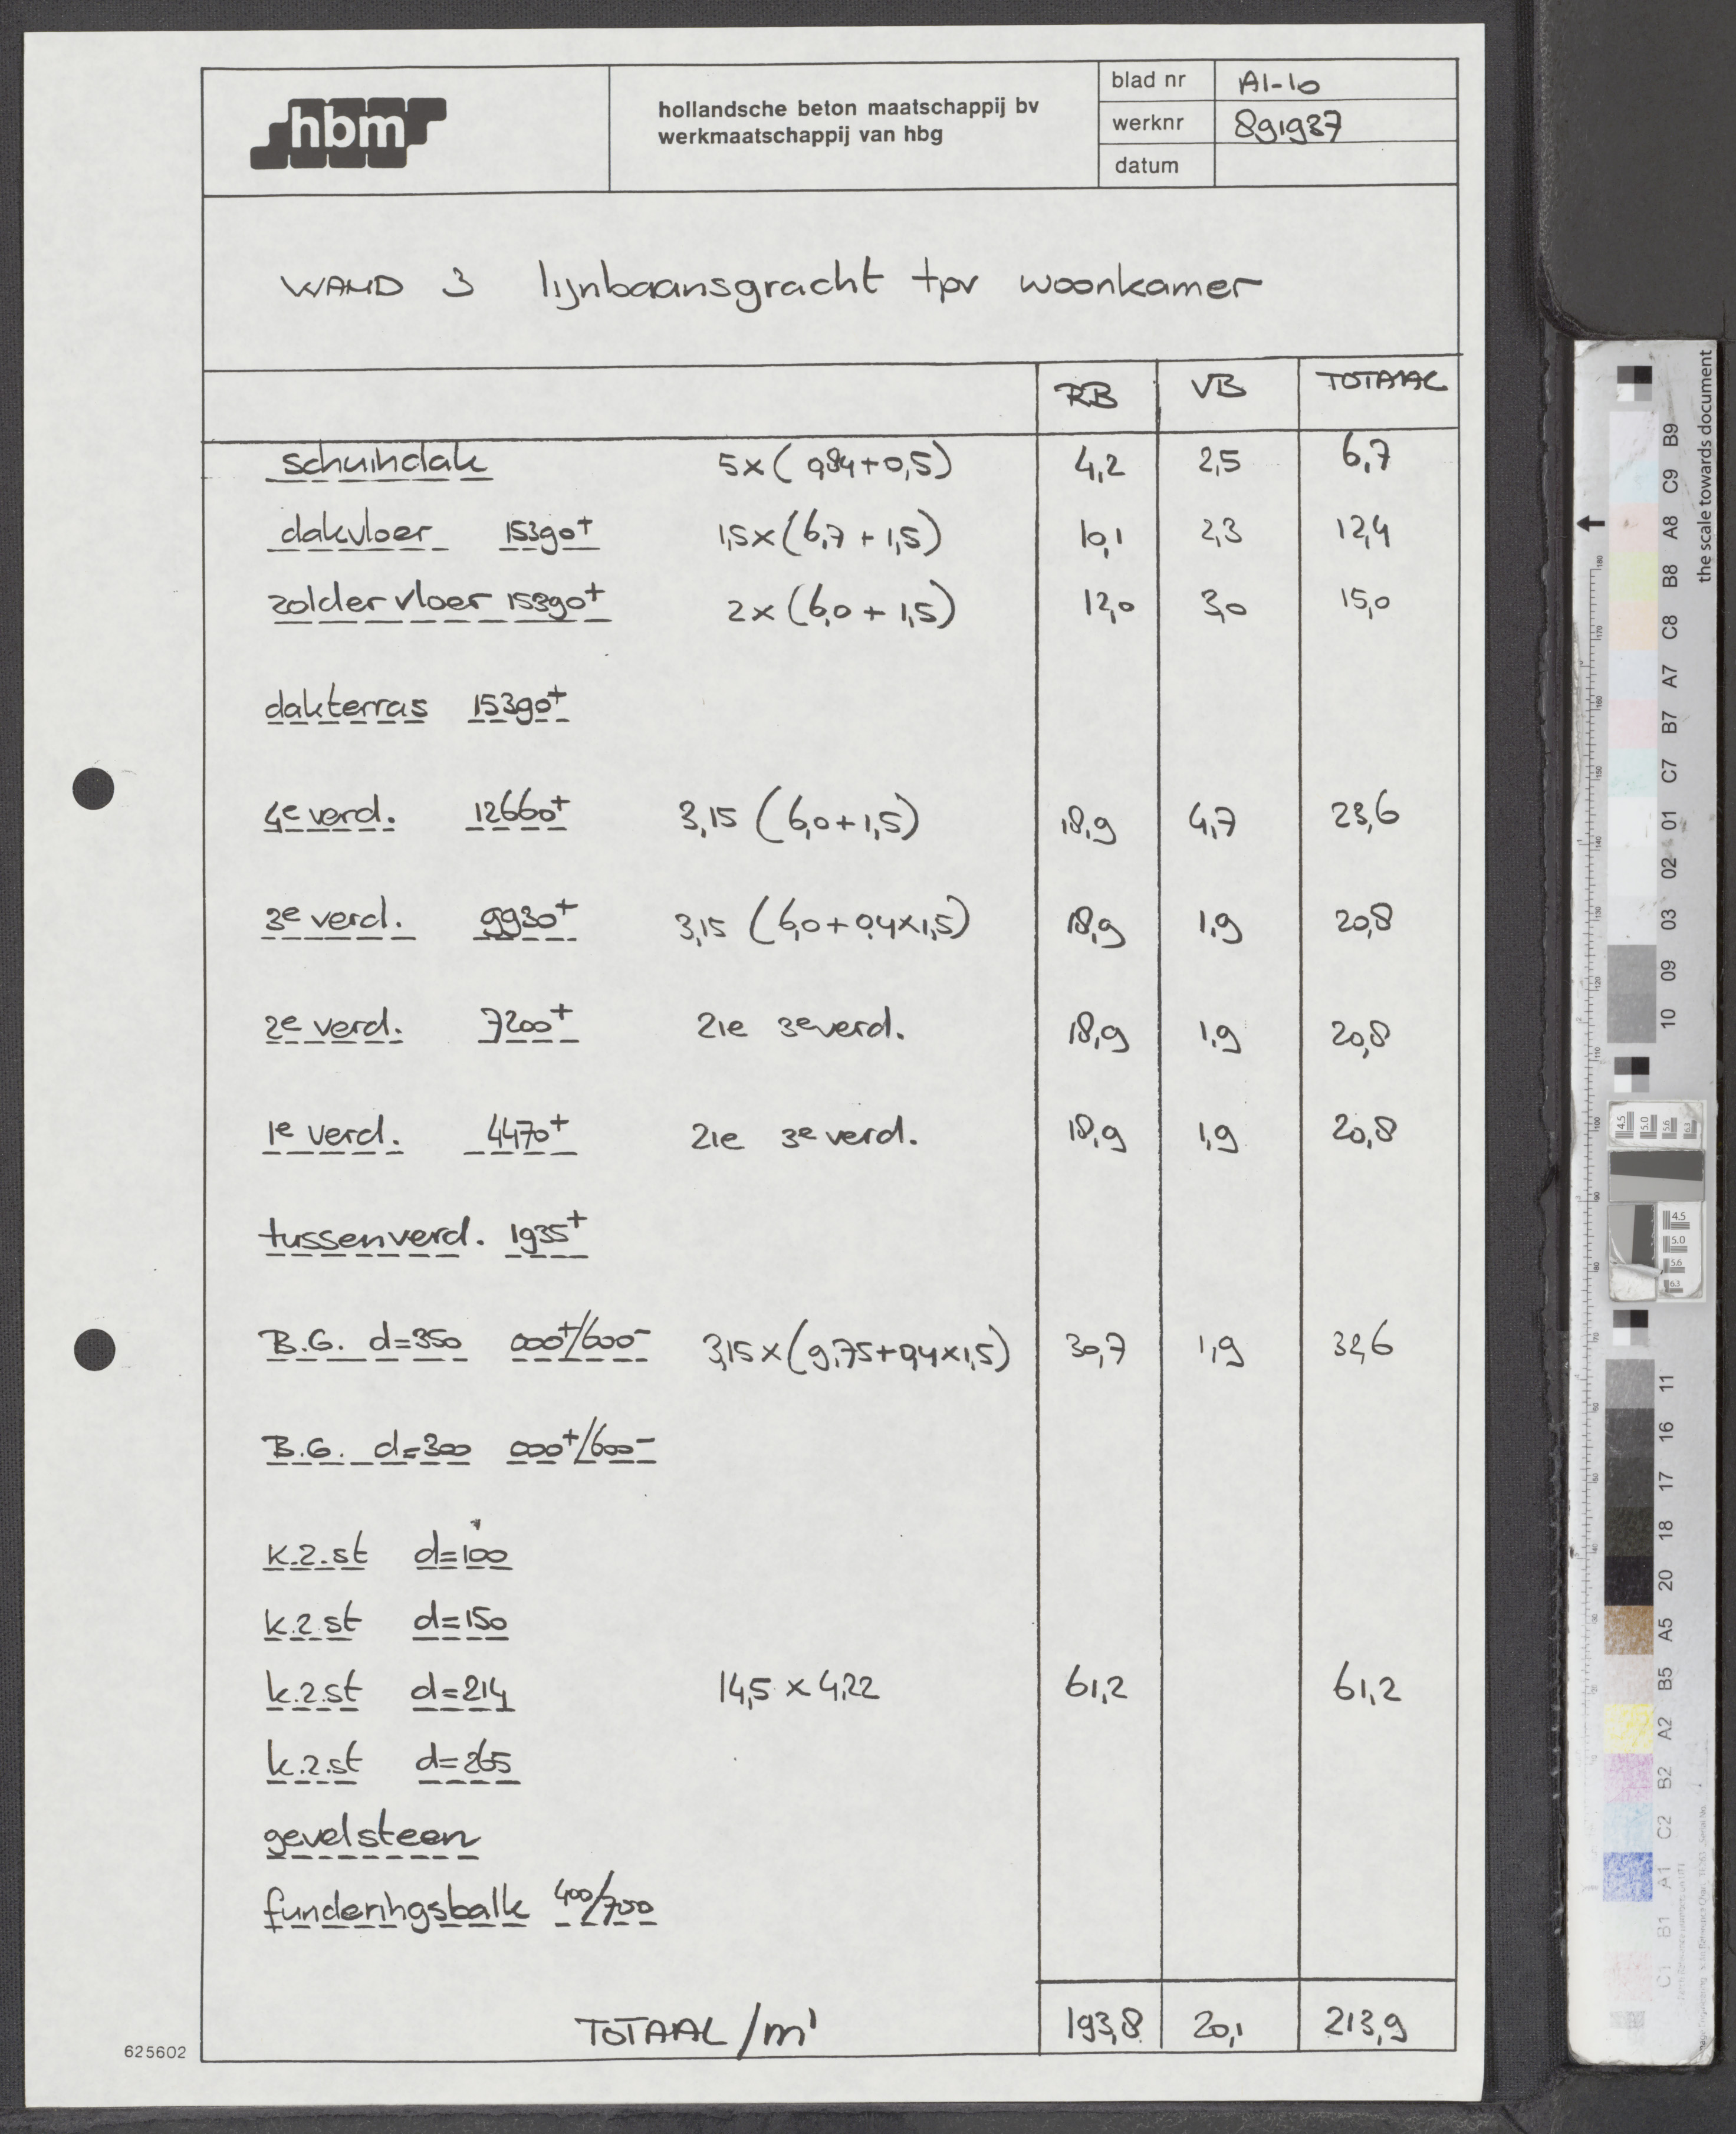 hbm
hollandsche beton maatschappij bv
werkmaatschappij van hbg
blad nr A1-10
werknr 891937
datum
WAND 3 lijnbaansgracht tpv woonkamer
RB VB TOTAAL
schuindak 5x(0,84+0,5) 4,2 2,5 6,7
dakvloer 15390+ 1,5x(6,7+1,5) 10,1 2,3 12,4
zoldervloer 15390+ 2x(6,0+1,5) 12,0 3,0 15,0
dakterras 15390+
4e verd. 12660+ 3,15 (6,0+1,5) 18,9 4,7 23,6
3e verd. 9930+ 3,15 (6,0+0,4x1,5) 18,9 1,9 20,8
2e verd. 7200+ zie 3e verd. 18,9 1,9 20,8
1e verd. 4470+ zie 3e verd. 18,9 1,9 20,8
tussenverd. 1935+
B.G. d=350 000+/600- 3,15x(9,75+0,4x1,5) 30,7 1,9 32,6
B.G. d=300 000+/600-
k.z.st d=100
k.z.st d=150
k.z.st d=214 14,5 x 4,22 61,2 61,2
k.z.st d=265
gevelsteen
funderingsbalk 400/700
TOTAAL/m¹ 193,8 20,1 213,9
625602
the scale towards document
B9
C9
A8
B8
C8
A7
B7
C7
01
02
03
09
10
11
16
17
18
20
A5
B5
A2
B2
C2
A1
B1
C1